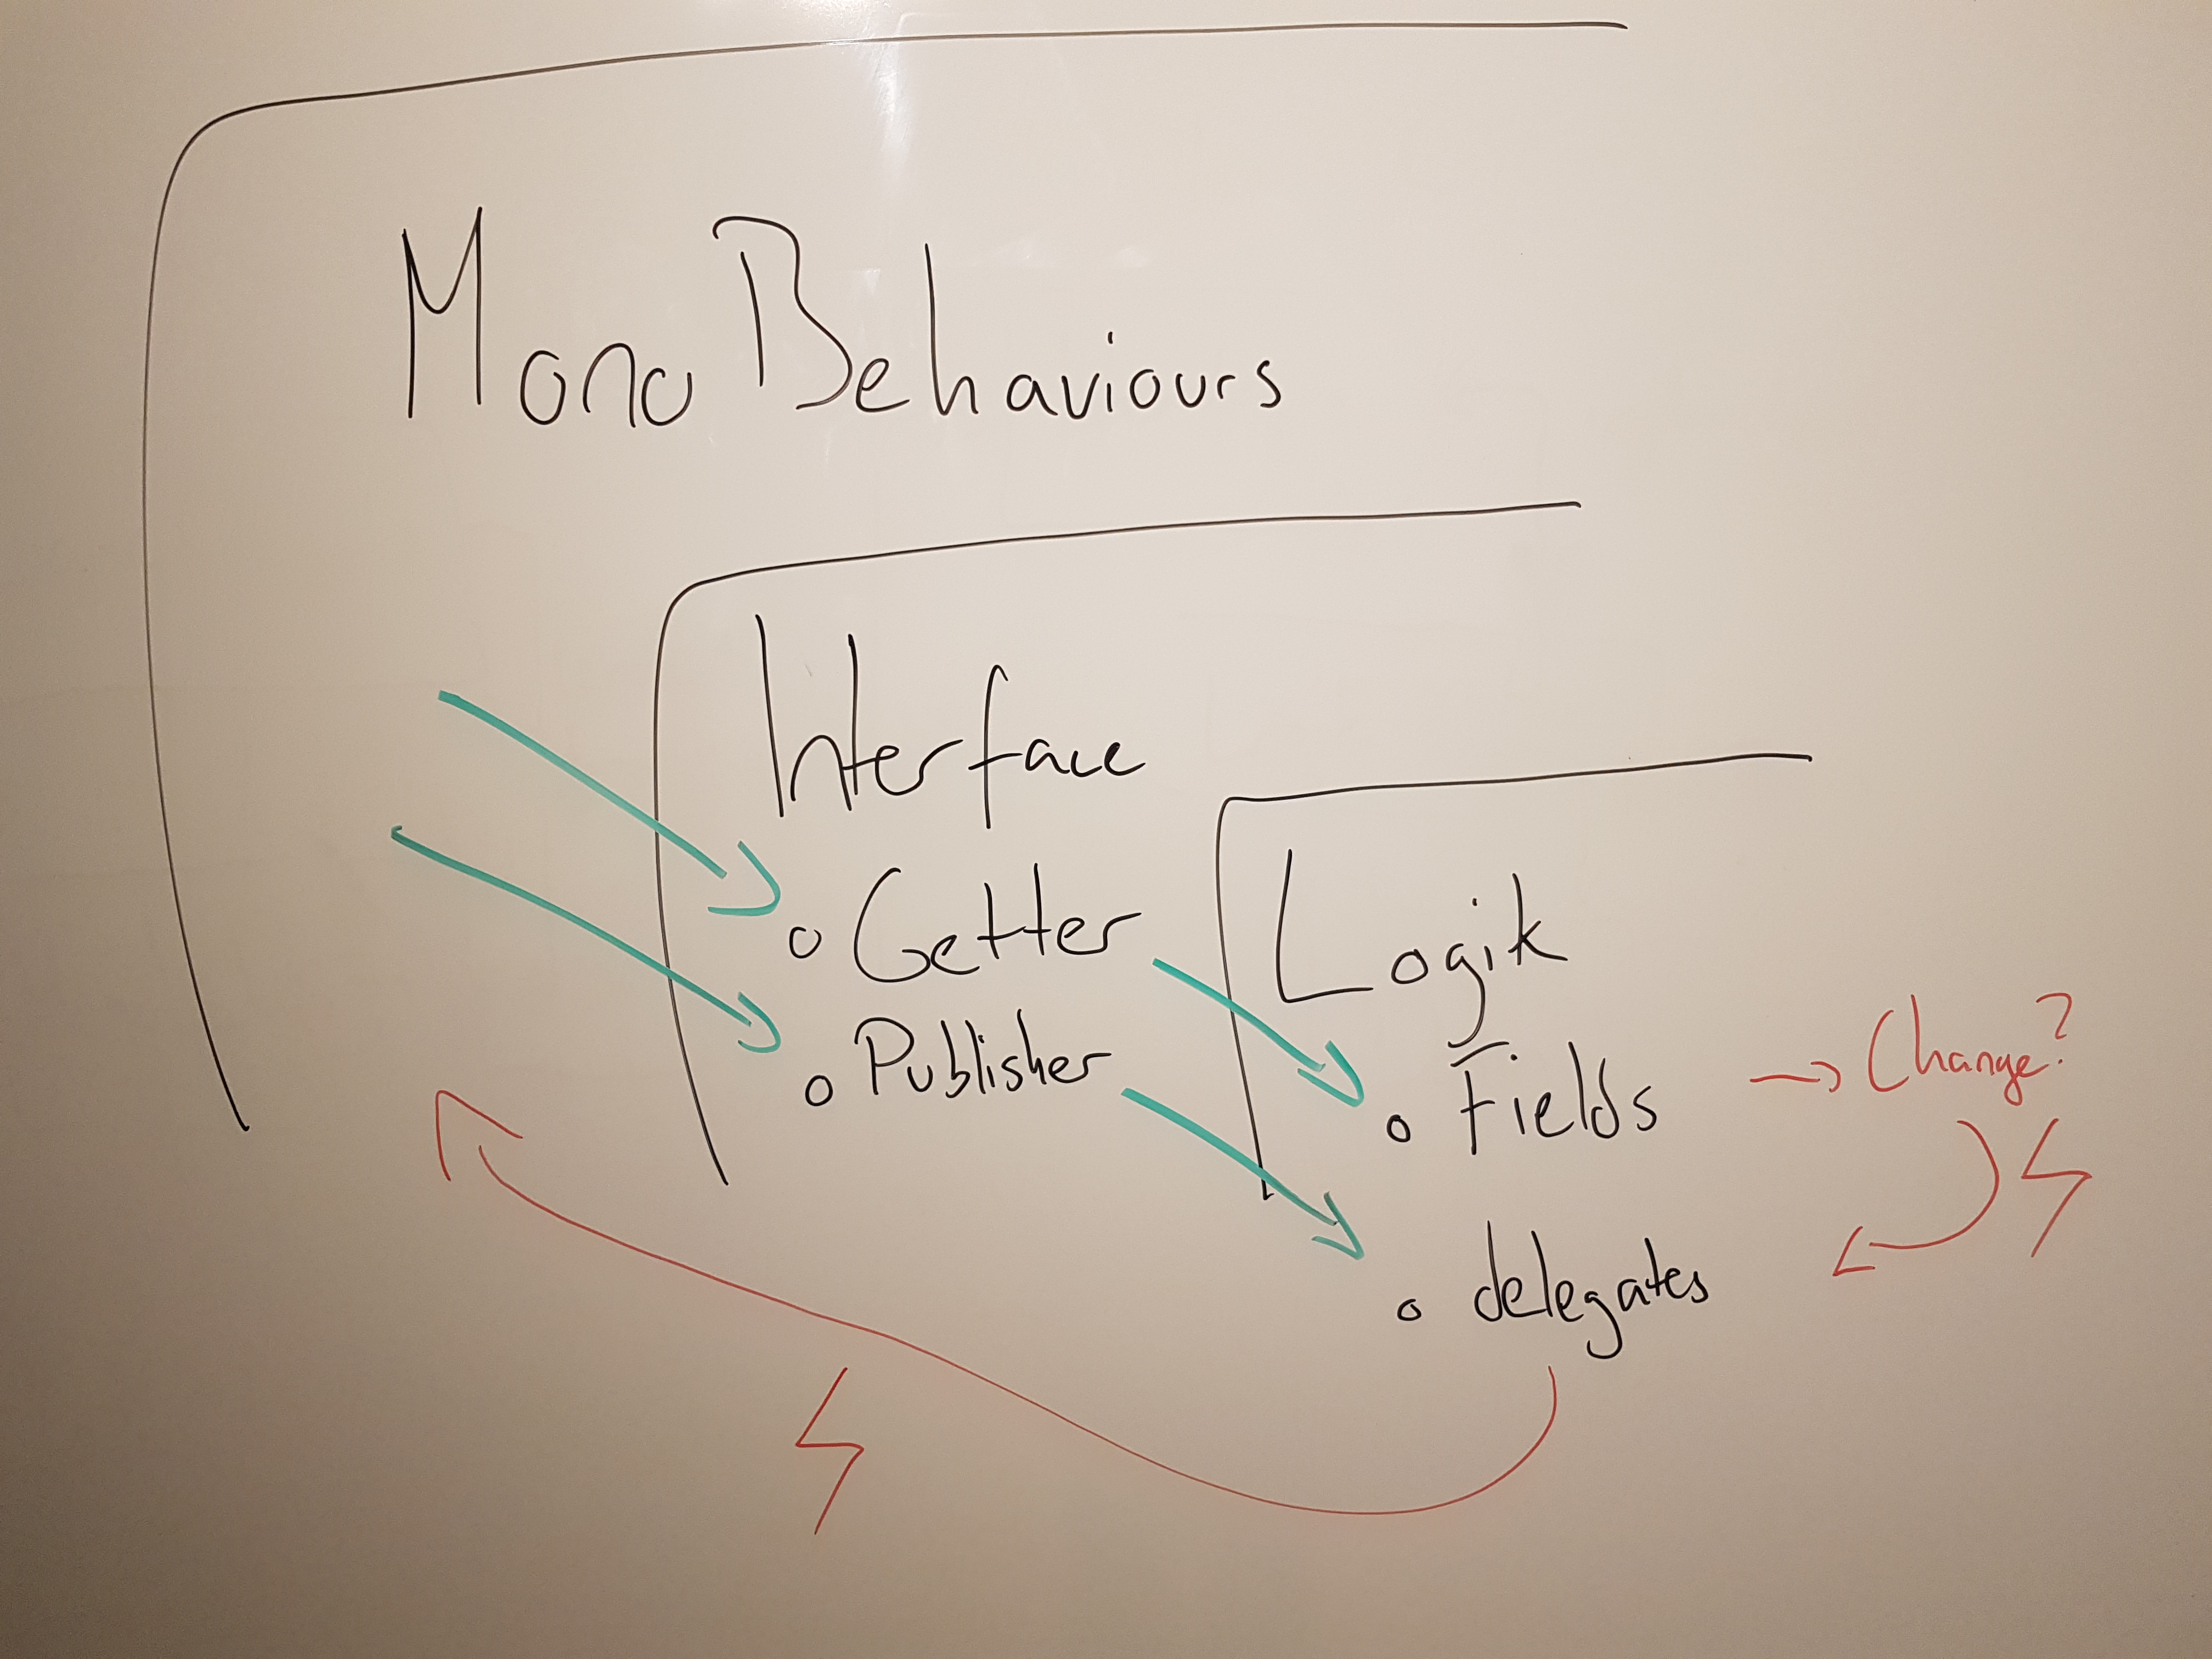 Mono Behaviours
Interface
o Getter
o Publisher
Logik
o Fields
→ Change?
o delegates